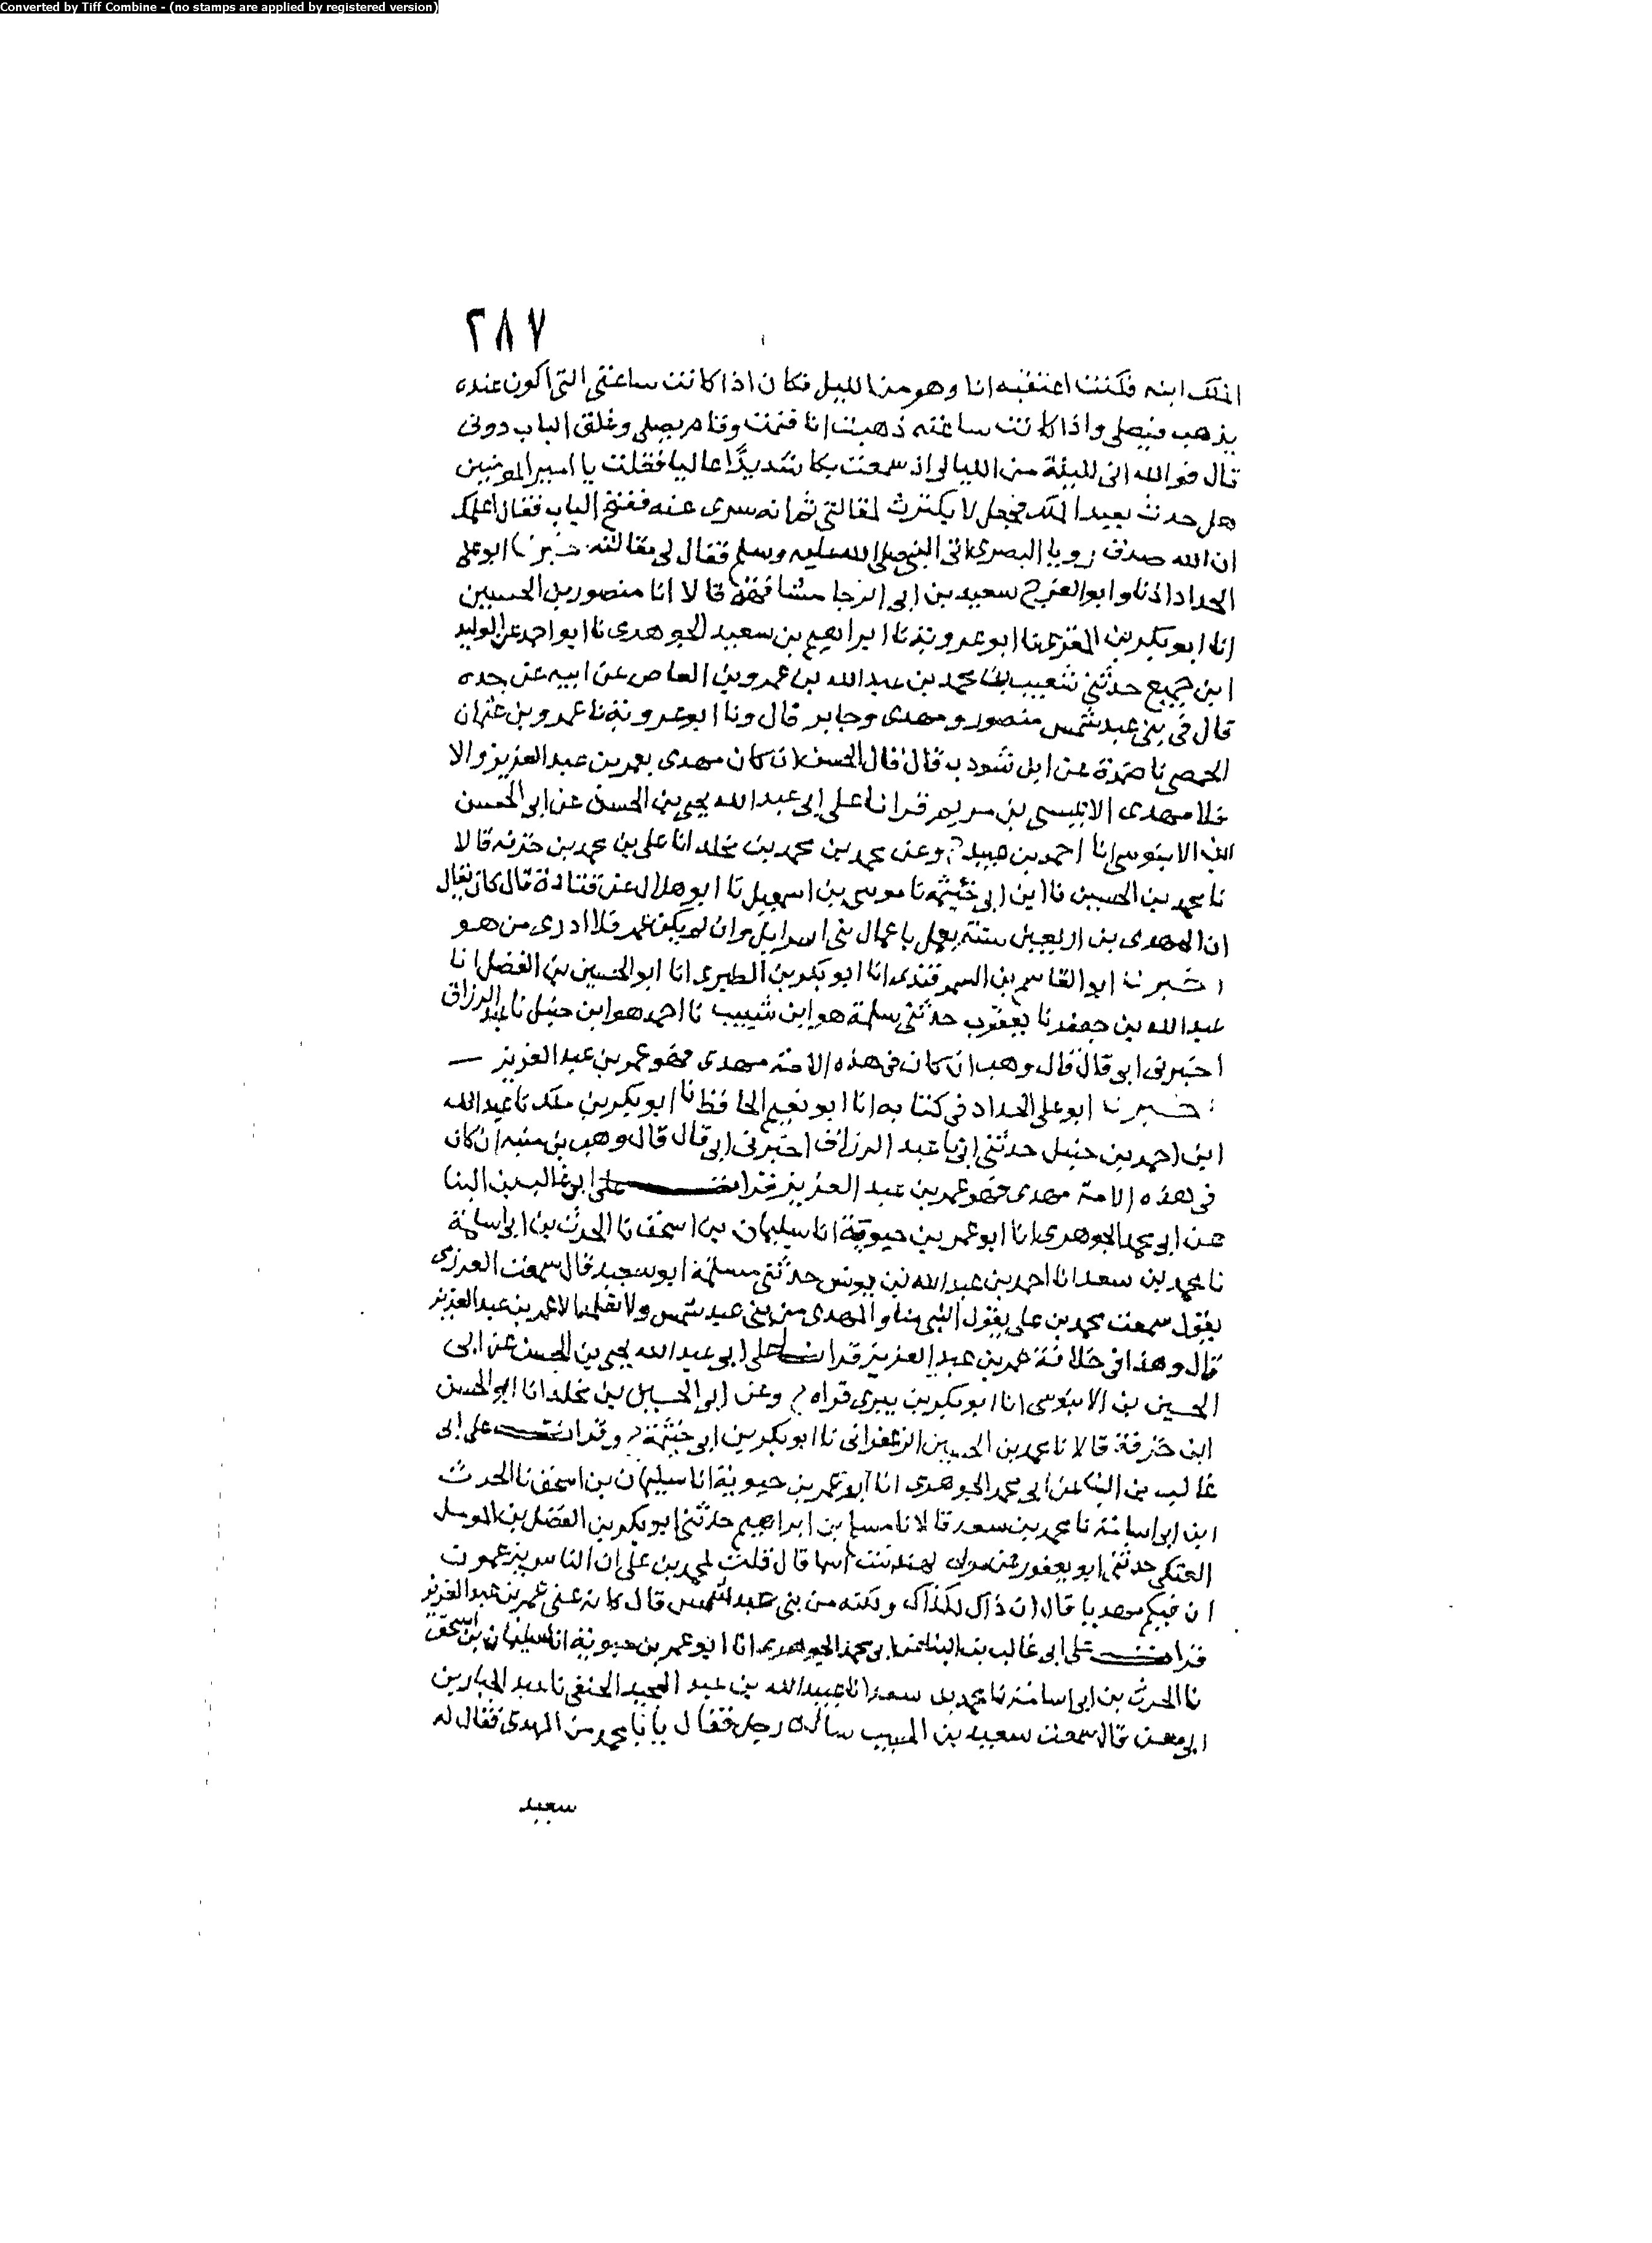 Converted by Tiff Combine - (no stamps are applied by registered version)
٢٨٧
الملك ابنه فكنت اعتقبه انا وهو من الليل فكان اذا كانت ساعتى التى اكون عنده
يذهب فيصلى واذا كانت ساعته ذهبت انا فنمت وقام يصلى وغلق الباب دونى
قال فوالله انى لليلة من الليالى اذ سمعت بكا شديدًا عاليا فقلت يا امير المومنين
هل حدث بعبد الملك فجعل لا يكترث لمقالتى ثم انه سرى عنه ففتح الباب فقال اعلمك
ان الله صدق رويا البصرى اتى النبى صلى الله عليه وسلم فقال لى مقالته خبرنا ابوعلى
الحداد اذنا وابو الفرج سعيد بن ابى الرجا مشافهة قالا انا منصور بن الحسين
انا ابو بكر بن المقرى نا ابو عروبة نا ابراهيم بن سعيد الجوهرى نا ابو احمد عن الوليد
ابن جميع حدثنى شعيب بن محمد بن عبد الله بن عمرو بن العاص عن ابيه عن جده
قال فى بنى عبد شمس منصور ومهدى وجابر قال ونا ابو عروبة نا عمرو بن عثمان
الحمصى نا ضمرة عن ابن شوذب قال قال الحسن ان كان مهدى بعمر بن عبد العزيز والا
فلا مهدى الا عيسى بن مريم قرانا على ابى عبد الله يحيى بن الحسن عن ابى الحسن
ابن الابنوسى انا احمد بن عبيد ح وعن محمد بن محمد بن مخلد انا على بن محمد بن خزفة قالا
نا محمد بن الحسين نا ابن ابى خيثمة نا موسى بن اسمعيل نا ابو هلال عن قتادة قال كان يقال
ان المهدى بن اربعين سنة يعمل باعمال بنى اسرايل وان لم يكن عمر فلا ادرى من هو
اخبرنا ابو القاسم بن السمرقندى انا ابو بكر بن الطبرى انا ابو الحسين بن الفضل انا
عبد الله بن جعفر نا يعقوب حدثنى سلمة هو ابن شبيب نا احمد هو ابن حنبل نا عبد الرزاق
اخبرنى ابى قال قال وهب ان كان فى هذه الامة مهدى فهو عمر بن عبد العزيز —
اخبرنا ابو على الحداد فى كتابه انا ابو نعيم الحافظ نا ابو بكر بن ملك نا عبد الله
ابن احمد بن حنبل حدثنى ابى نا عبد الرزاق اخبرنى ابى قال قال وهب بن منبه ان كان
فى هذه الامة مهدى فهو عمر بن عبد العزيز قرات على ابى غالب بن البنا
عن ابى محمد الجوهرى انا ابو عمر بن حيوية انا سليمان بن اسحق نا الحرث بن ابى اسامة
نا محمد بن سعد انا احمد بن عبد الله بن يونس حدثنى مسلمة ابو سعيد قال سمعت العرزى
يقول سمعت محمد بن على يقول النبى منا والمهدى من بنى عبد شمس ولا نعلمه الا عمر بن عبد العزيز
قال وهذا فى خلافة عمر بن عبد العزيز قرات على ابى عبد الله يحيى بن الحسن عن ابى
الحسين بن الابنوسى انا ابو بكر بن بيرى قراه ح وعن ابى الحسين بن مخلد انا ابو الحسن
ابن خزفة قالا نا محمد بن الحسين الزعفرانى نا ابو بكر بن ابى خيثمة ح وقرات على ابى
غالب بن البنا عن ابى محمد الجوهرى انا ابو عمر بن حيوية انا سليمان بن اسحق نا الحرث
ابن ابى اسامة نا محمد بن سعد قالا نا مسلم بن ابراهيم حدثنى ابو بكر بن الفضل بن الموسل
العتكى حدثنى ابو يعفور عن مولى لهند بنت اسما قال قلت لمحمد بن على ان الناس يزعمون
ان فيكم مهديا قال ان ذاك لكذاك ولكنه من بنى عبد شمس قال كانه عنى عمر بن عبد العزيز
قرات على ابى غالب بن البنا عن ابى محمد الجوهرى انا ابو عمر بن حيوية انا سليمان بن اسحق
نا الحرث بن ابى اسامة نا محمد بن سعد انا عبيد الله بن عبد المجيد الحنفى نا عبد الجبار بن
ابى معن قال سمعت سعيد بن المسيب ساله رجل فقال يا با محمد من المهدى فقال له
سعيد